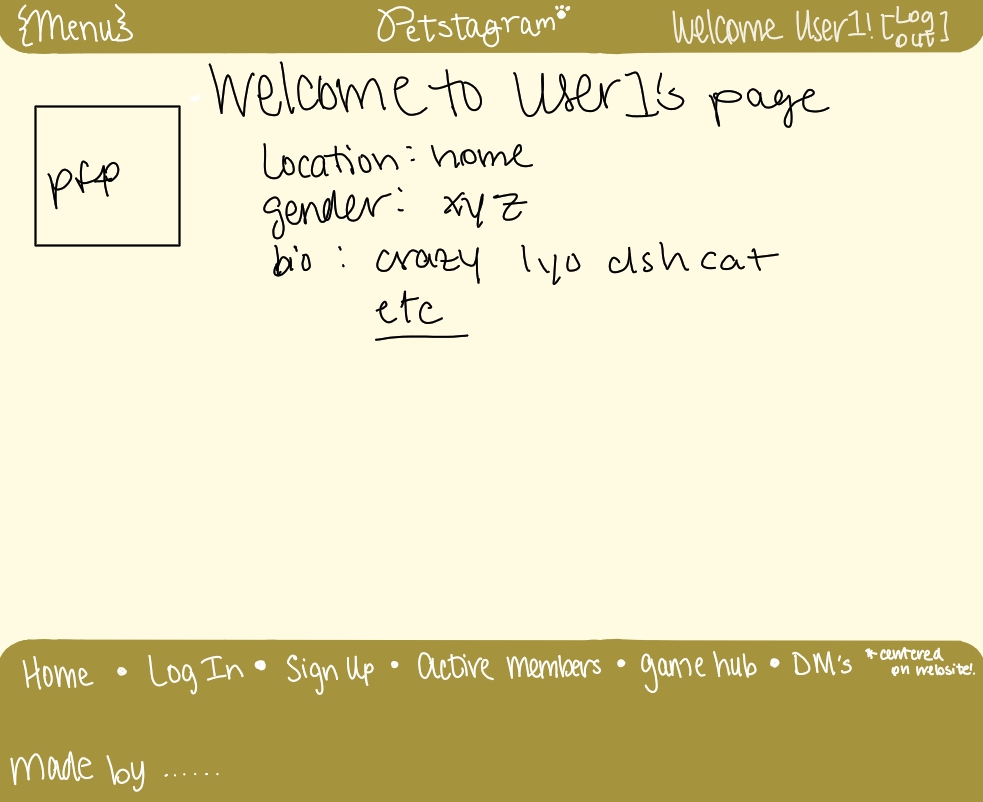 {Menu} Petstagram Welcome User1! [Log out]
Welcome to User1's page
pfp
location: home
gender: xyz
bio: crazy 1yo dsh cat
etc
Home • Log In • Sign Up • Active members • game hub • DM's *centered on website!
Made by ......